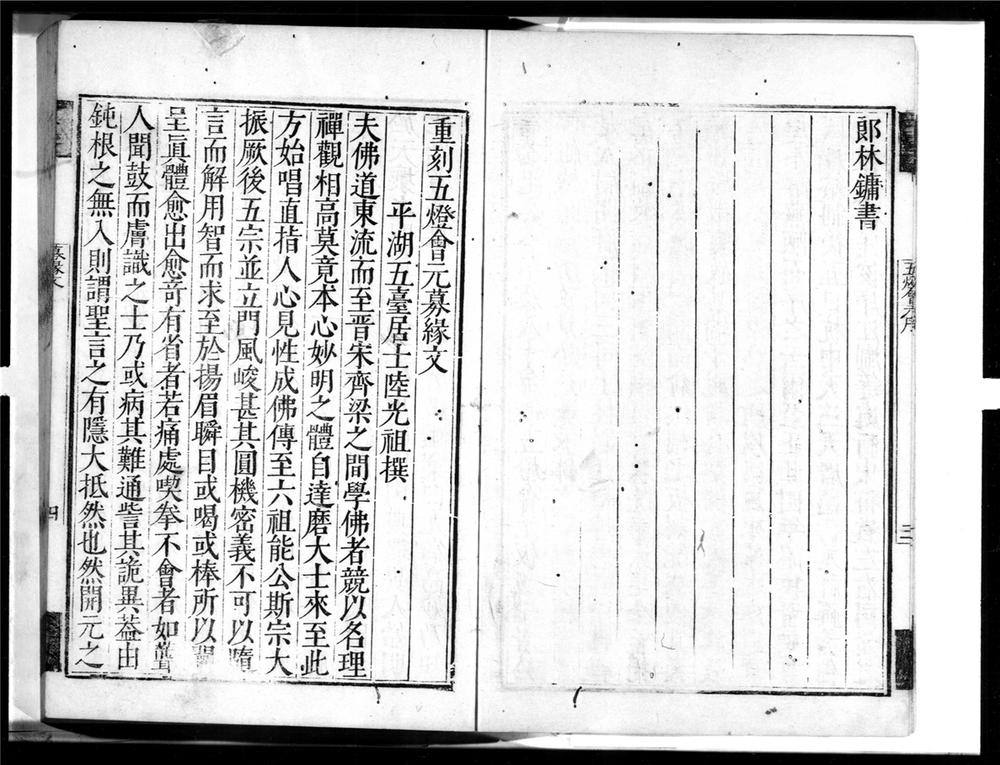 郞林鏞書
五燈會元序
三
重刻五燈會元募緣文
平湖五臺居士陸光祖撰
夫佛道東流而至晋宋齊梁之間學佛者競以名理
禪觀相高莫竟本心妙明之體自達磨大士來至此
方始唱直指人心見性成佛傳至六祖能公斯宗大
振厥後五宗並立門風峻甚其圓機密義不可以隨
言而解用智而求至於揚眉瞬目或喝或棒所以
呈眞體愈出愈竒有省者若痛處喫拳不會者如聾
人聞鼓而膚識之士乃或病其難通訾其詭異葢由
鈍根之無入則謂聖言之有隱大抵然也然開元之
募緣文
四